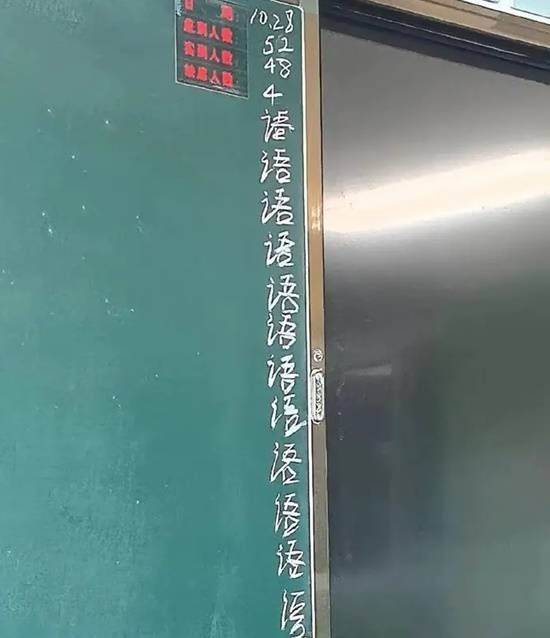 日 期
应到人数
实到人数
缺席人数
10.28
52
48
4
语
语
语
语
语
语
语
语
语
语
语